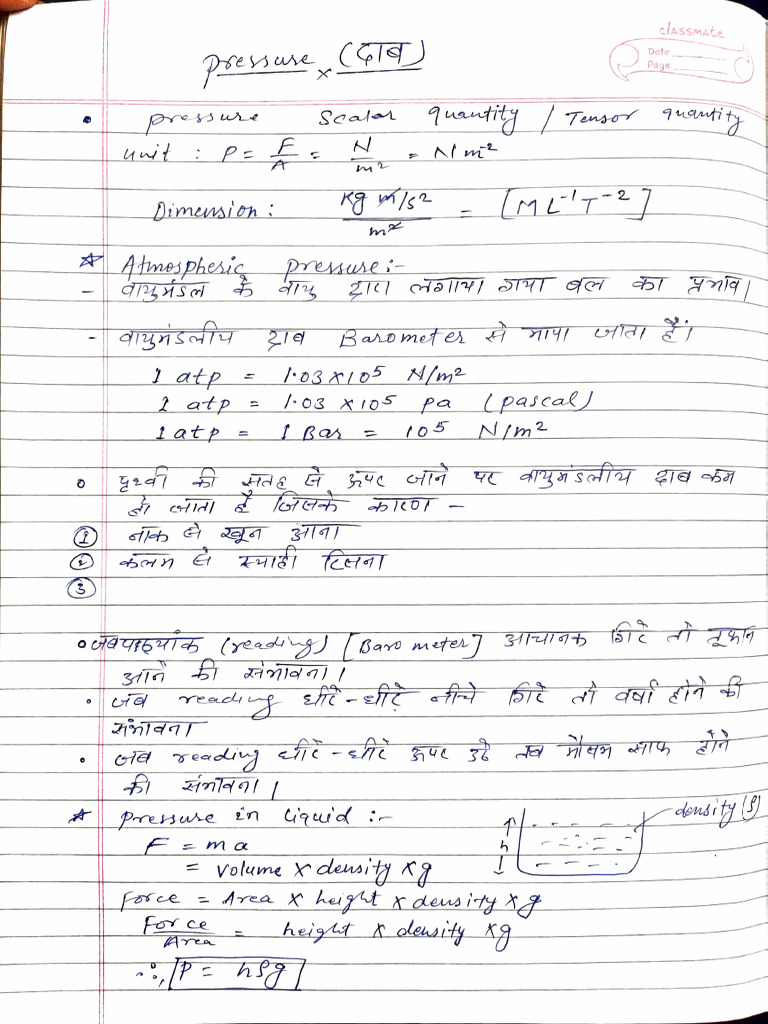 classmate
Date
Page
pressure × (दाब)
• pressure scalar quantity / Tensor quantity
unit : P = F/A = N/m² = Nm²
Dimension: kg m/s² / m² = [ML⁻¹T⁻²]
☆ Atmospheric pressure:-
- वायुमंडल के वायु द्वारा लगाया गया बल का प्रभाव।
- वायुमंडलीय दाब Barometer से मापा जाता हैं।
1 atp = 1.03×10⁵ N/m²
1 atp = 1.03 ×10⁵ pa (pascal)
1 atp = 1 Bar = 10⁵ N/m²
० पृथ्वी की सतह से ऊपर जाने पर वायुमंडलीय दाब कम
हो जाता है जिसके कारण –
① नाक से खून आना
② कलम से स्याही रिसना
③
० जब पाठ्यांक (reading) [Barometer] आचानक गिरे तो तूफान
आने की संभावना।
• जब reading धीरे-धीरे नीचे गिरे तो वर्षा होने की
संभावना
• जब reading धीरे-धीरे ऊपर उठे तब मौसम साफ होने
की संभावना।
☆ pressure in liquid :-
density (ρ)
h
F = ma
= volume × density × g
Force = Area × height × density × g
Force/Area = height × density × g
∴, P = hρg